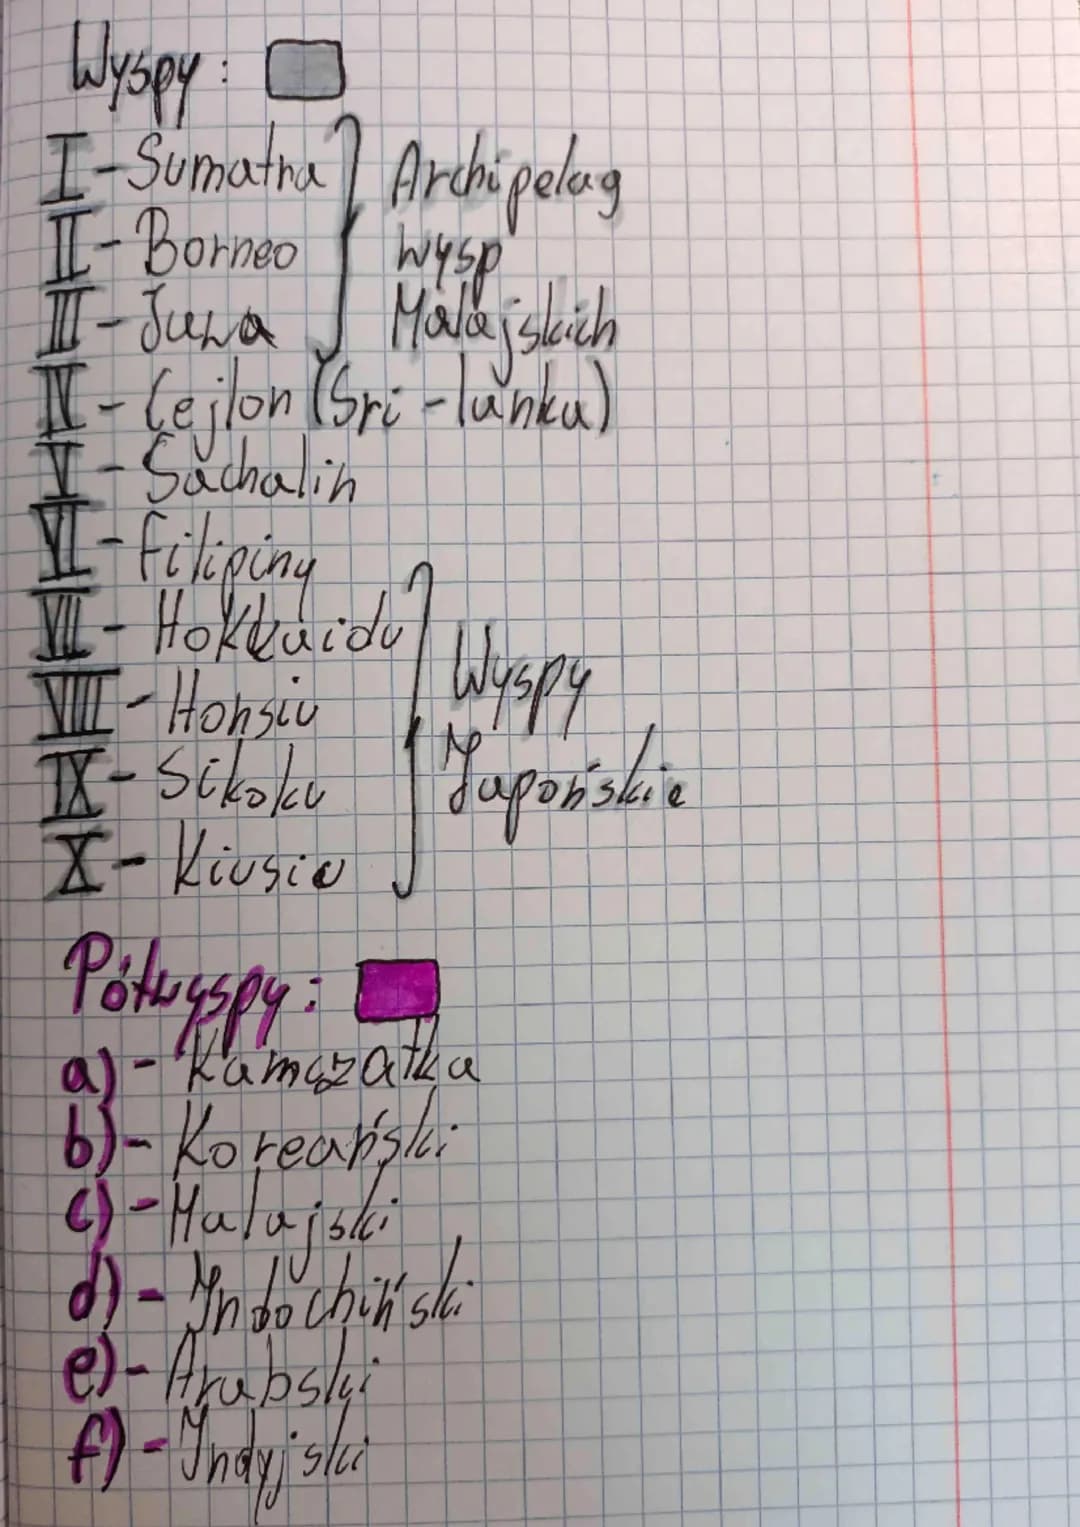 Wyspy:
I - Sumatra
II - Borneo
III - Jawa
Archipelag
wysp
Malajskich
IV - Cejlon (Sri - lanka)
V - Sachalin
VI - Filipiny
VII - Hokkaido
VIII - Honsiu
IX - Sikoku
X - Kiusiu
Wyspy
Japońskie
Półwyspy:
a) - Kamczatka
b) - Koreański
c) - Malajski
d) - Indochiński
e) - Arabski
f) - Indyjski